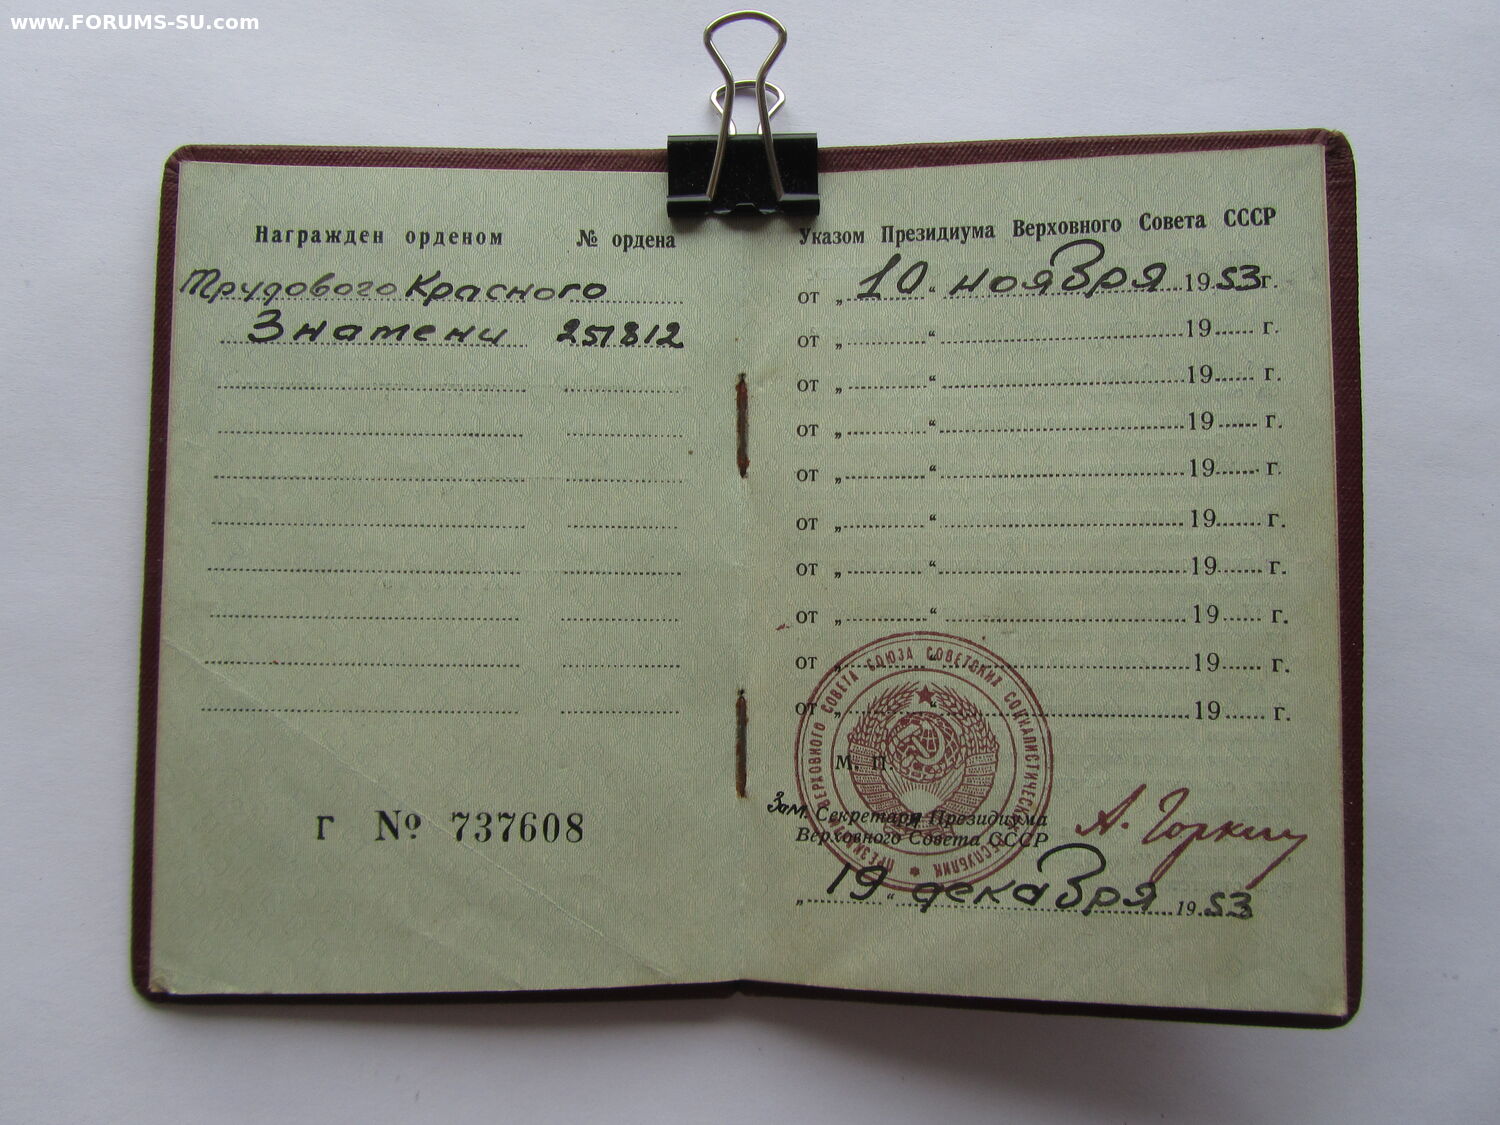 www.FORUMS-SU.com
Награжден орденом № ордена
Трудового Красного
Знамени 251812
Г № 737608
Указом Президиума Верховного Совета СССР
от „ 10 “ ноября 1953 г.
от „ “ 19 г.
от „ “ 19 г.
от „ “ 19 г.
от „ “ 19 г.
от „ “ 19 г.
от „ “ 19 г.
от „ “ 19 г.
от „ “ 19 г.
от „ “ 19 г.
ПРЕЗИДИУМ ВЕРХОВНОГО СОВЕТА СОЮЗА СОВЕТСКИХ СОЦИАЛИСТИЧЕСКИХ РЕСПУБЛИК
М. П.
Зам. Секретаря Президиума
Верховного Совета СССР
А. Горкин
„ 19 “ декабря 1953